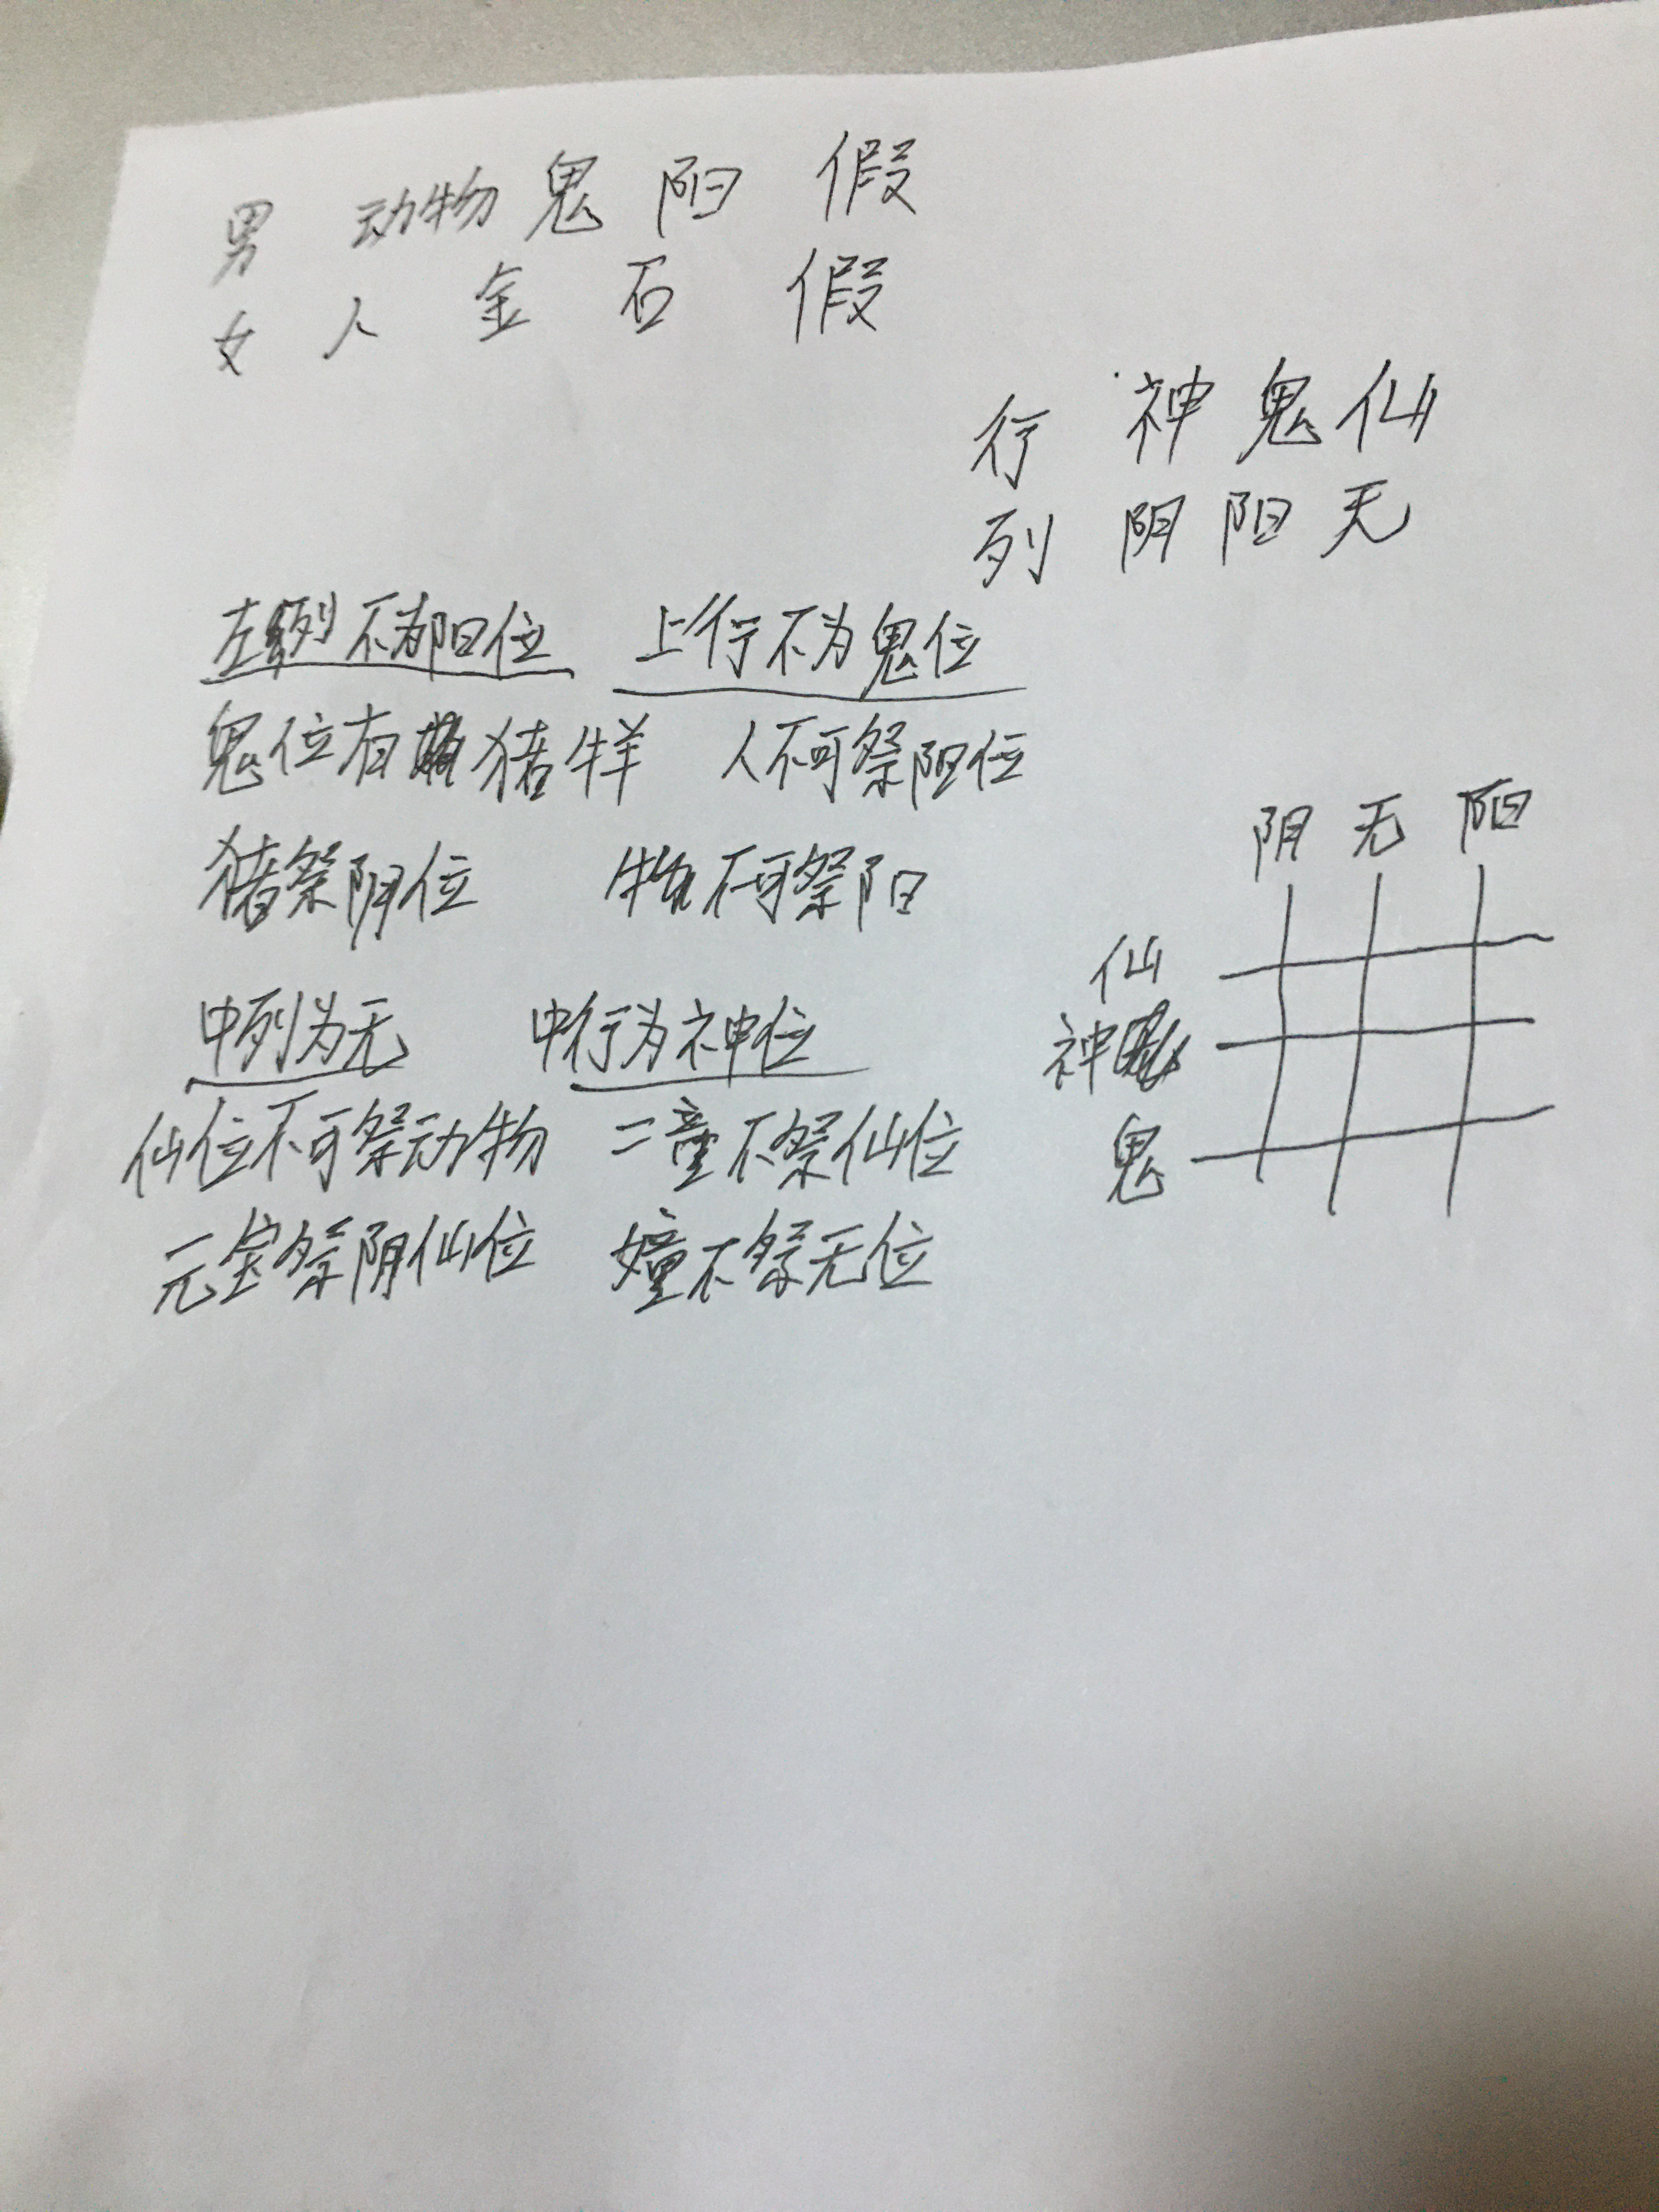 男 动物 鬼 阳 假
女 人 金 石 假
行 神 鬼 仙
列 阴 阳 无
左列不为阳位 上行不为鬼位
鬼位有猪牛羊 人不可祭阳位
猪祭阴位 物不可祭阳
中列为无 中行为神位
仙位不可祭动物 二童不祭仙位
元宝祭阴仙位 童不祭无位
阴 无 阳
仙
神
鬼